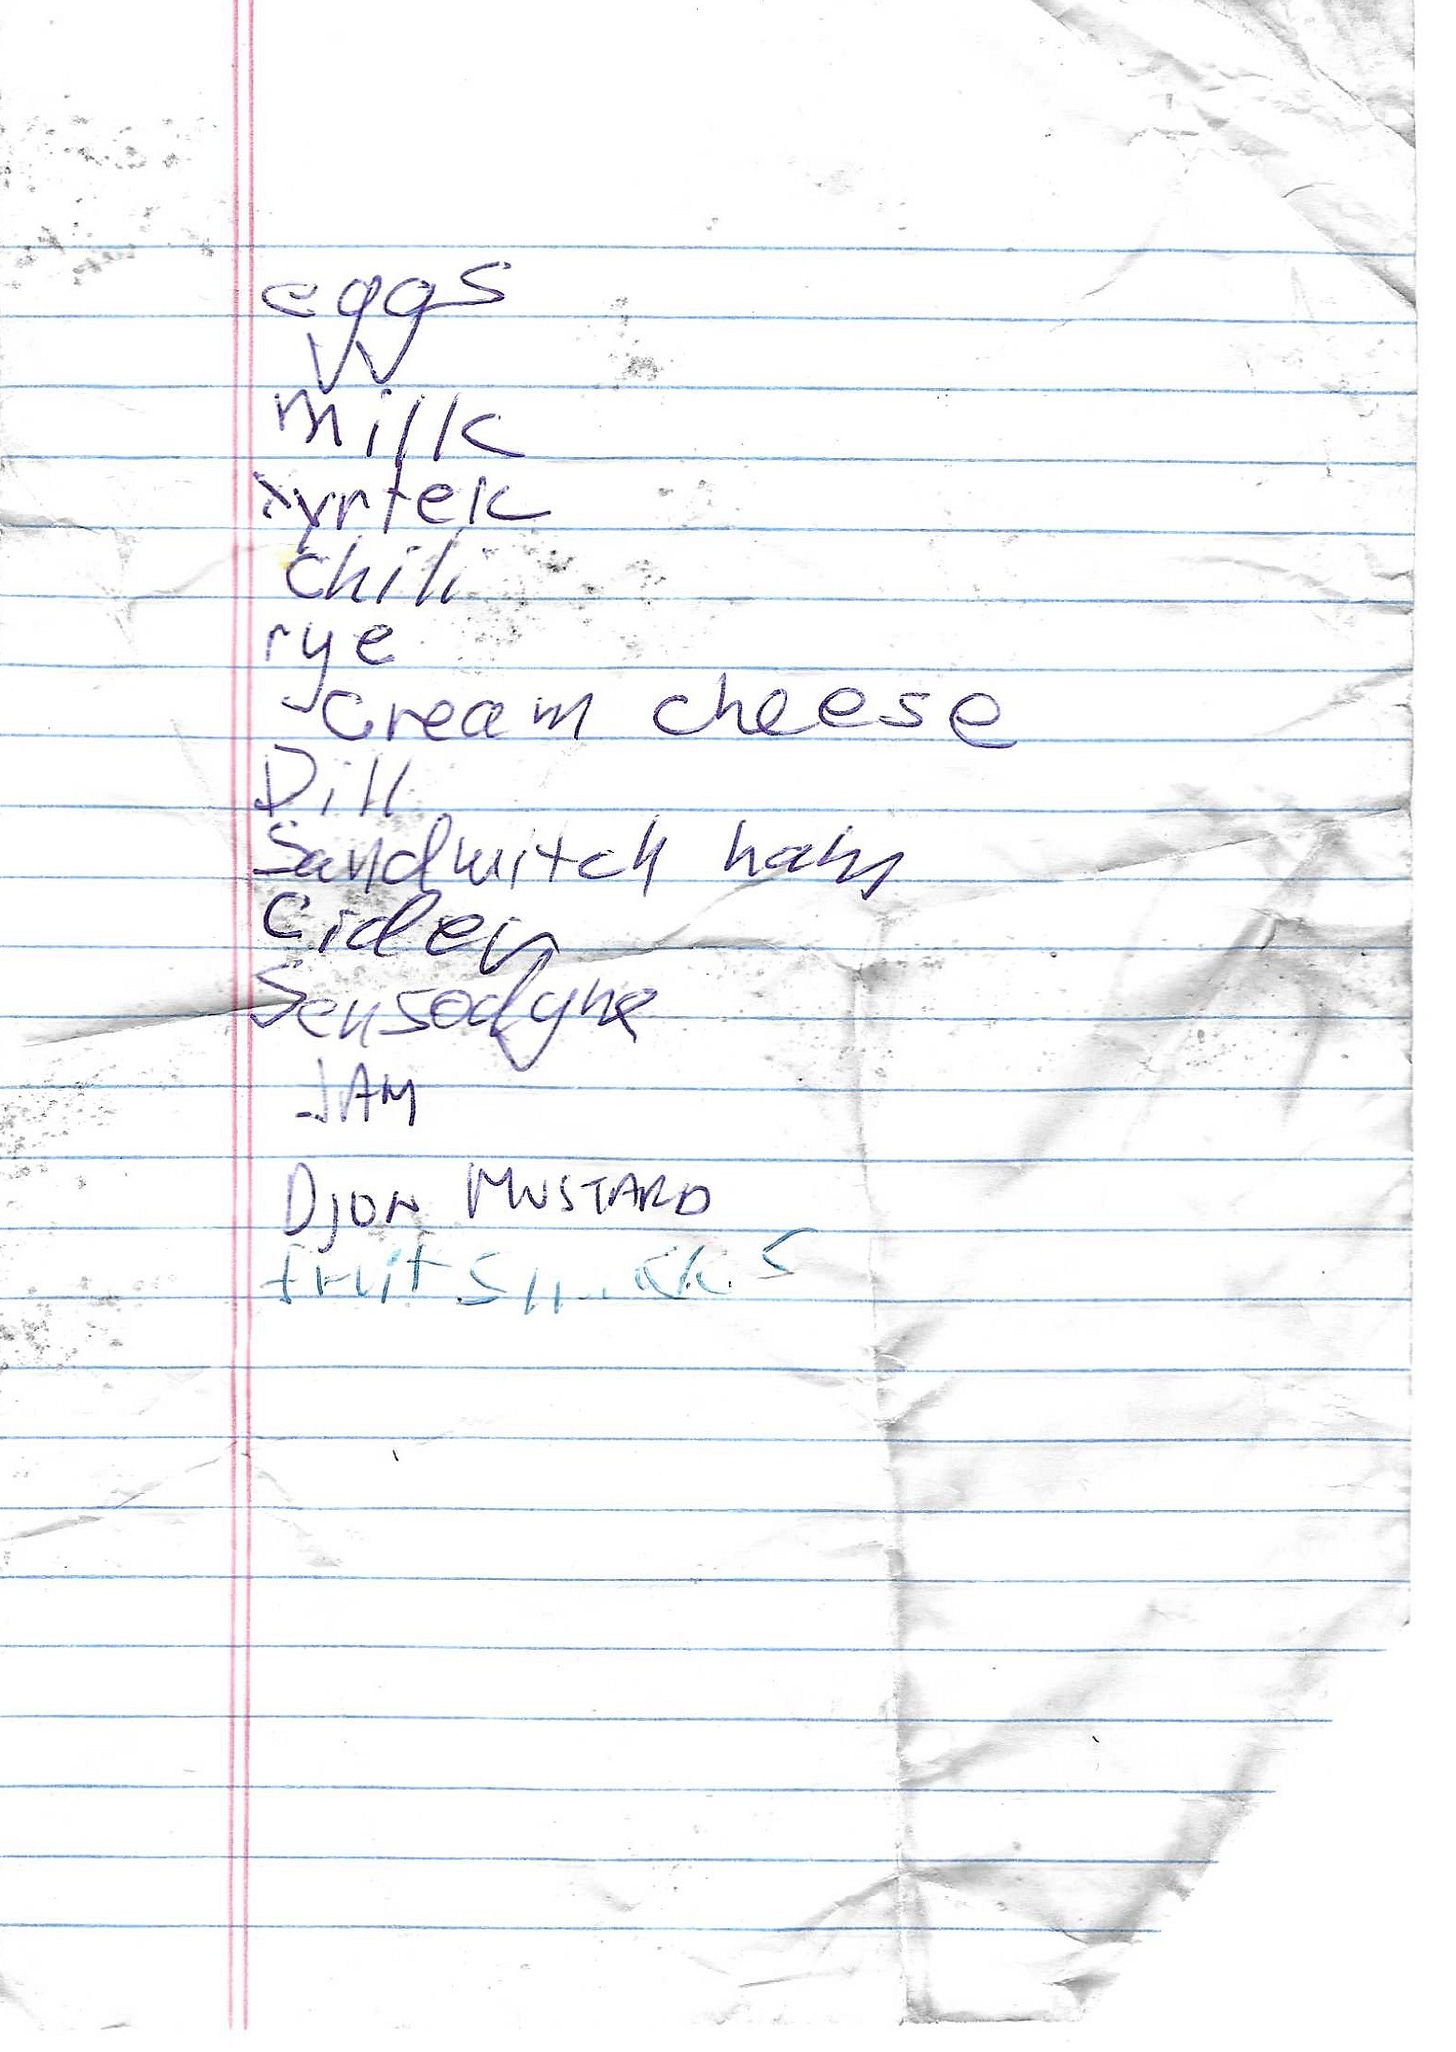 eggs
milk
xyrtek
chili
rye
cream cheese
Dill
Sandwitch ham
Cider
Sensodyne
JAM
DJON MUSTARD
fruit snacks